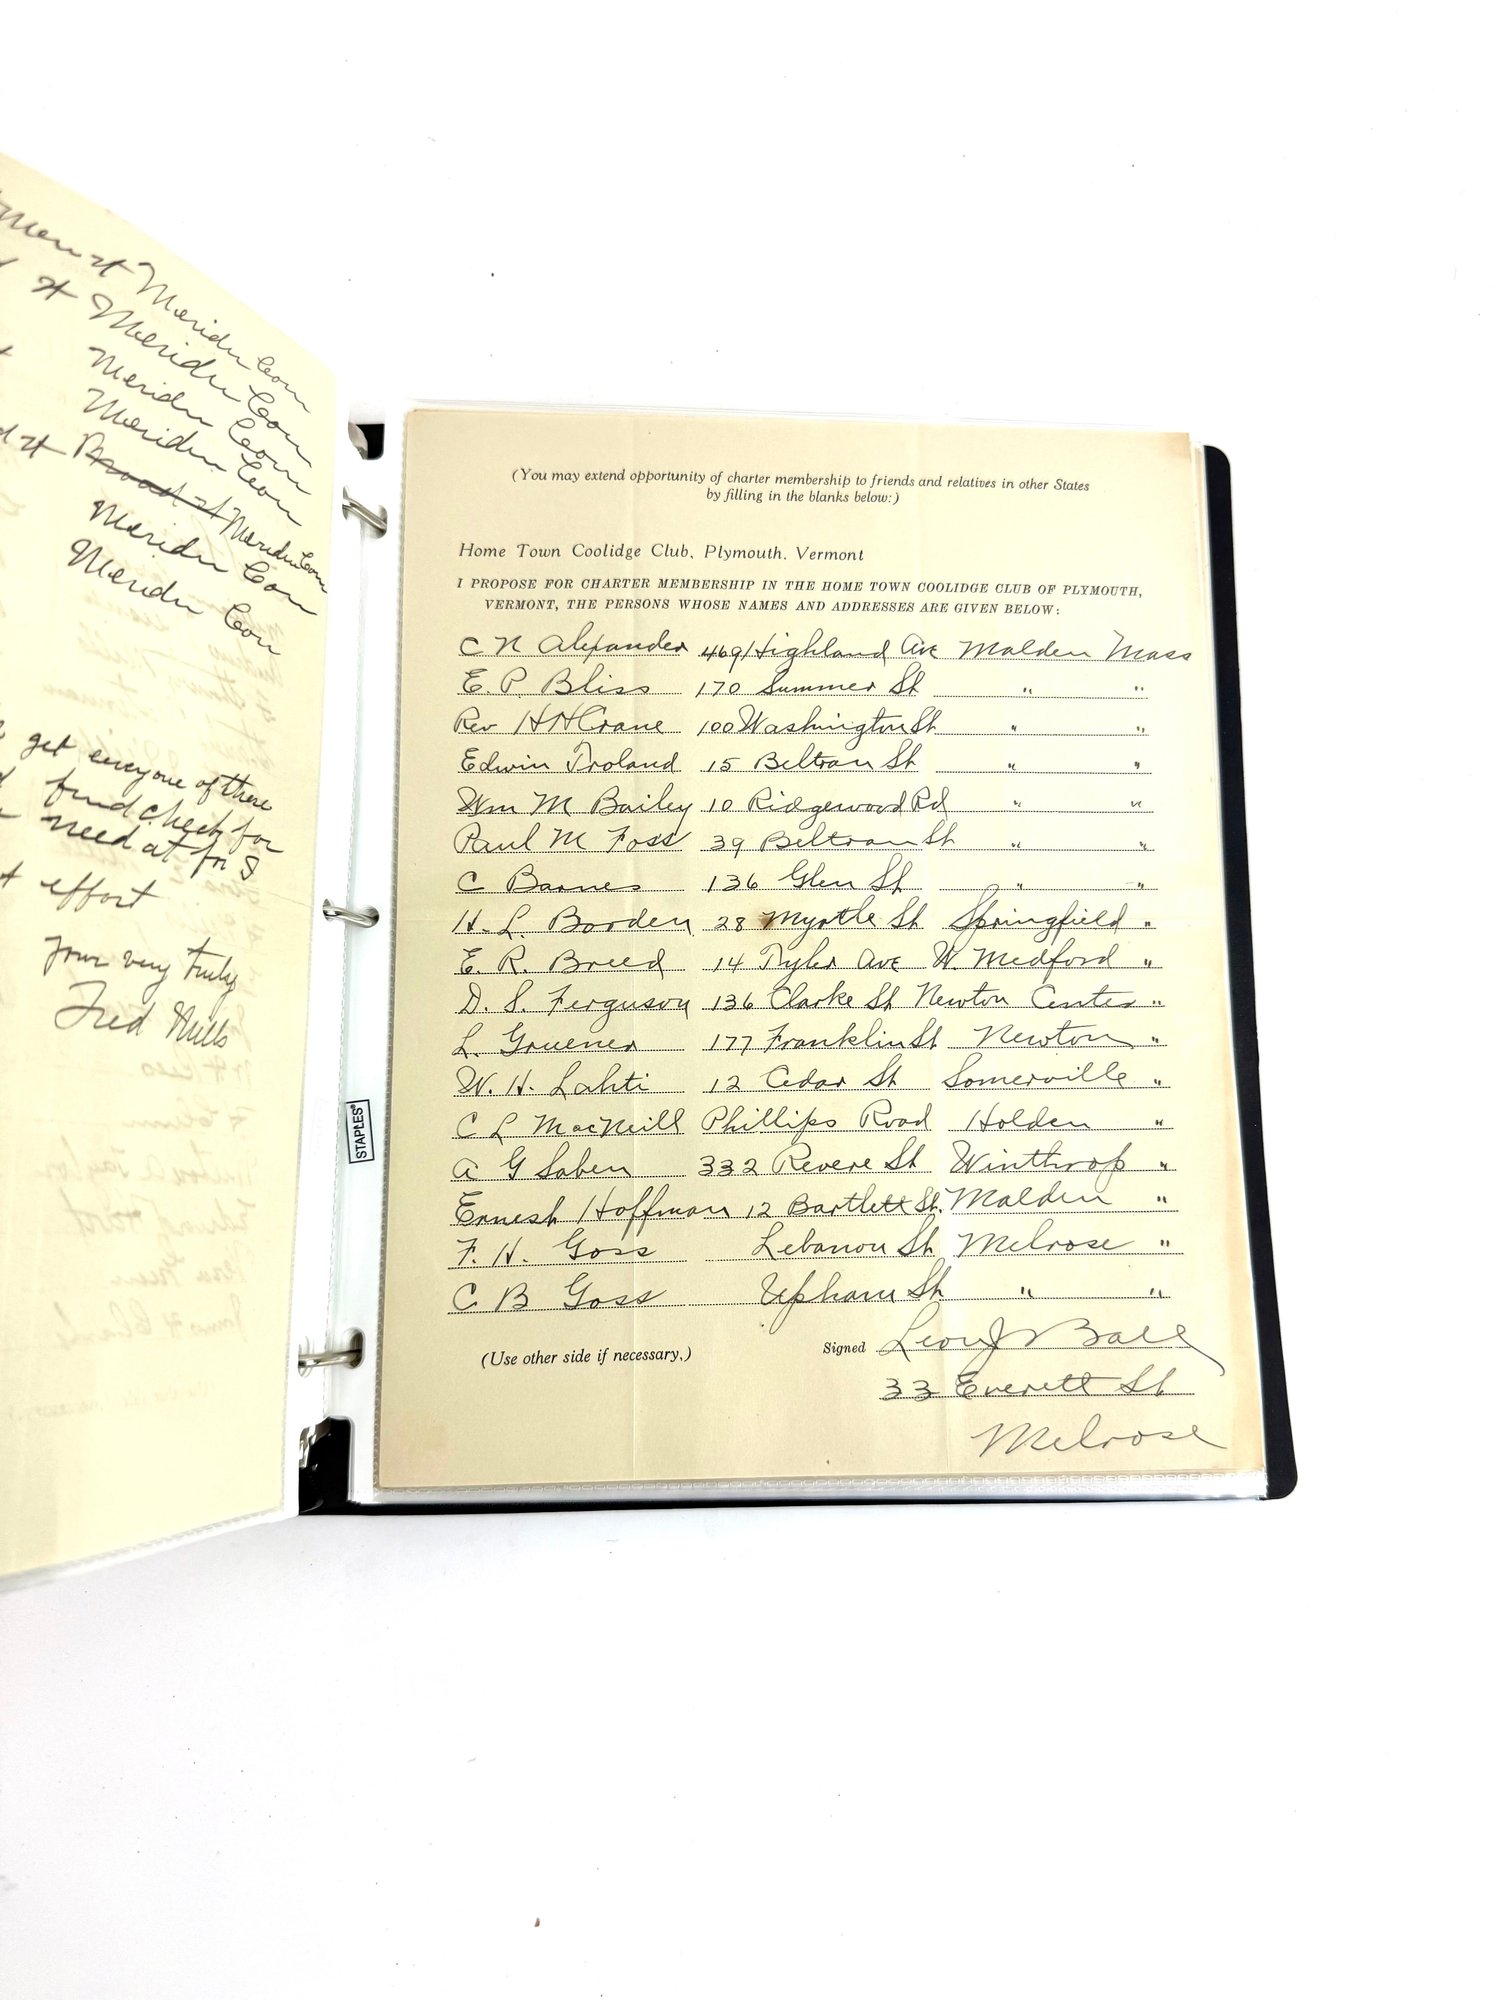 Meridn Con
st Meridn Con
Meridn Con
Meridn Con
st Broad st Meridn Con
Meridn Con
Meridn Con
get everyone of these
fund check for
need at for $
effort
your very truly
Fred Mills
STAPLES®
(You may extend opportunity of charter membership to friends and relatives in other States
by filling in the blanks below:)
Home Town Coolidge Club, Plymouth, Vermont
I PROPOSE FOR CHARTER MEMBERSHIP IN THE HOME TOWN COOLIDGE CLUB OF PLYMOUTH,
VERMONT, THE PERSONS WHOSE NAMES AND ADDRESSES ARE GIVEN BELOW:
C N Alexander 469 Highland Ave Malden Mass
E. P. Bliss 170 Summer St " "
Rev H H Crane 100 Washington St " "
Edwin Troland 15 Beltran St " "
Wm M Bailey 10 Ridgewood Rd " "
Paul M Foss 39 Beltran St " "
C Barnes 136 Glen St " "
H. L. Borden 28 Myrtle St Springfield "
E. R. Breed 14 Tyler Ave W. Medford "
D. S. Ferguson 136 Clarke St Newton Center "
L. Gruener 177 Franklin St Newton "
W. H. Lahti 12 Cedar St Somerville "
C L MacNeill Phillips Road Holden "
A G Saben 332 Revere St Winthrop "
Ernest Hoffman 12 Bartlett St. Malden "
F. H. Goss Lebanon St Melrose "
C B Goss Upham St " "
(Use other side if necessary.)
Signed Leon J Ball
33 Everett St
Melrose